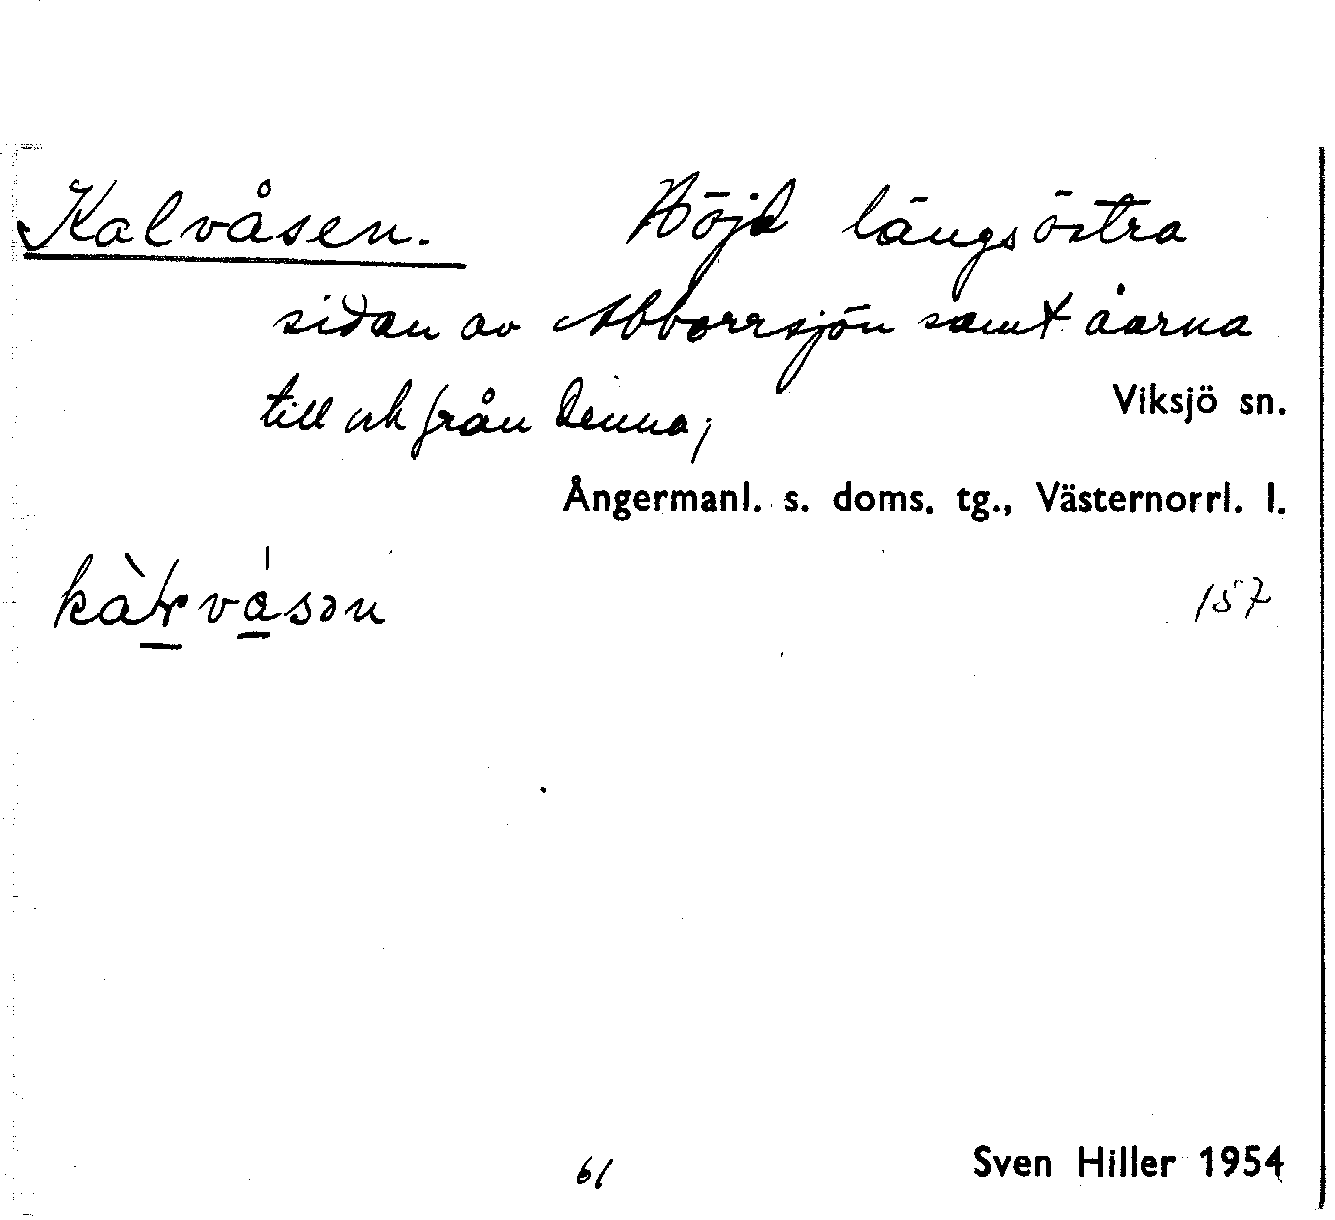 Kalvåsen. Höjd längs östra
sidan av Abborrsjön samt åarna
till och från denna;
Viksjö sn.
Ångermanl. s. doms. tg., Västernorrl. l.
157
61
Sven Hiller 1954